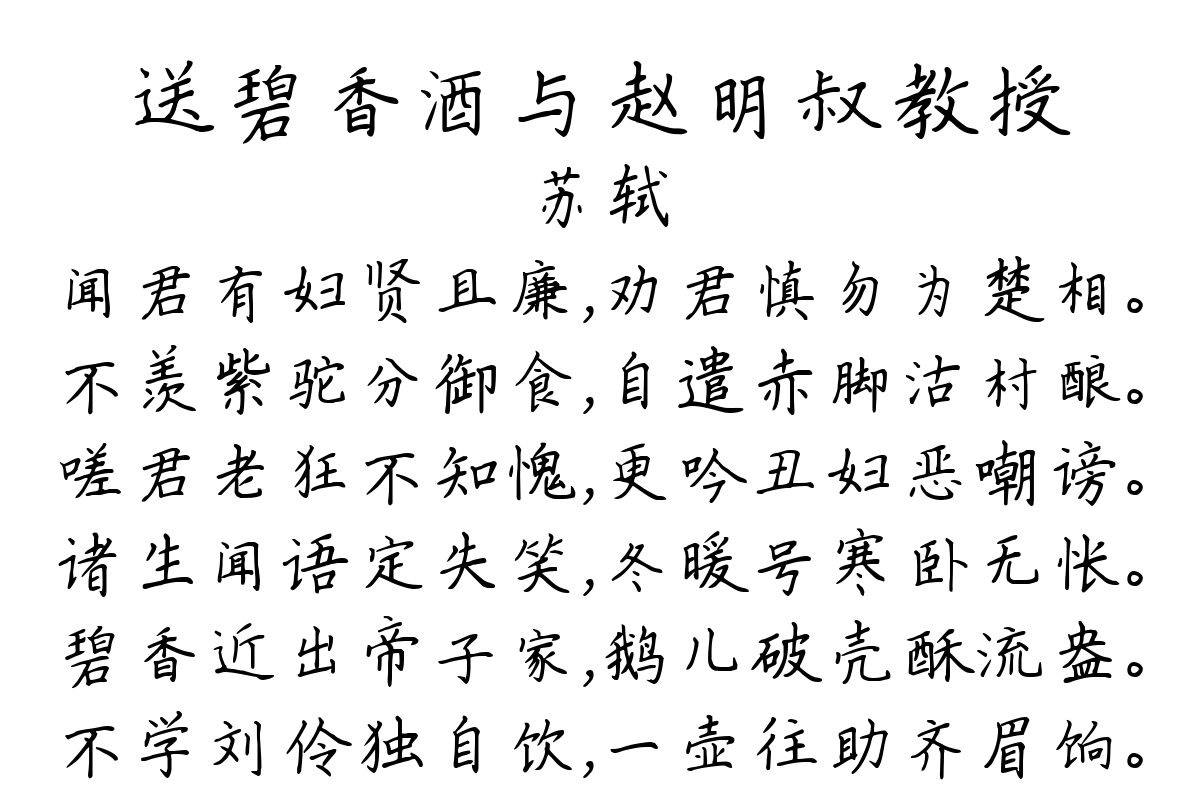 送碧香酒与赵明叔教授
苏轼
闻君有妇贤且廉,劝君慎勿为楚相。
不羡紫驼分御食,自遣赤脚沽村酿。
嗟君老狂不知愧,更吟丑妇恶嘲谤。
诸生闻语定失笑,冬暖号寒卧无怅。
碧香近出帝子家,鹅儿破壳酥流盎。
不学刘伶独自饮,一壶往助齐眉饷。